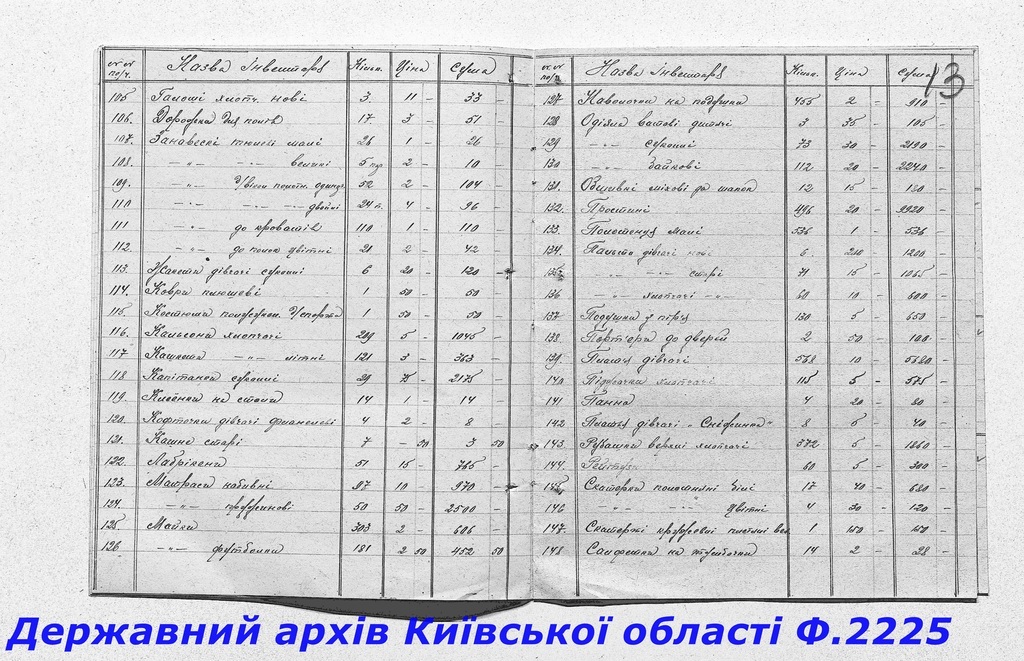 №№ по/ч. Назва Інвентаря Кільк. Ціна Сума
105 Галоші хлопч. нові 3. 11 - 33 -
106. для 17 3 - 51 -
107. Занавескі малі 26 1 - 26 -
108. -"- -"- великі 5 2 - 10 -
109. -"- 52 2 - 104 -
110 -"- -"- двойні 24 п. 4 - 96 -
111 -"- до кроваті 110 1 - 110 -
112. -"- до цвітні 21 2 - 42 -
113. Жакети дівчачі суконні 6 20 - 120 -
114. Коври плюшеві 1 50 - 50 -
115. Костюми 1 50 - 50 -
116. Кальсони хлопчачі 209 5 - 1045 -
117 Кашкети -"- літні 121 3 - 363 -
118 Капітанки суконні 29 75 - 2175 -
119. на столи 14 1 - 14 -
120. Кофточки дівчачі фланелеві 4 2 - 8 -
121. Кашне старі 7 - 50 3 50
122. Лабрікени 51 15 - 765 -
123. Матраси набивні 97 10 - 970 -
124. -"- пружинові 50 50 - 2500 -
125 Майки 303 2 606 -
126 -"- футболки 181 2 50 452 50
13
№№ по/ч Назва Інвентаря Кільк. Ціна Сума
127 Наволочки на подушки 455 2 - 910 -
128 Одіяла ватові дитячі 3 35 - 105 -
129 -"- суконні 73 30 - 2190 -
130 -"- байкові 112 20 - 2240 -
131. до шапок 12 15 - 180 -
132. Простині 496 20 - 9920 -
133. Полотенця малі 536 1 - 536 -
134. Пальта дівчачі нові 6 200 - 1200 -
135 -"- -"- старі 71 15 - 1065 -
136 -"- хлопчачі -"- 60 10 - 600 -
137 Подушки з пір'я 130 5 - 650 -
138. Порт'єри до дверей 2 50 - 100 -
139. Плаття дівчачі 568 10 - 5680 -
140 Піджачки хлопчачі 115 5 - 575 -
141 Панна 4 20 - 80 -
142 Плаття дівчачі „Сніжинка" 8 5 - 40 -
143 Рубашки верхні хлопчачі 372 5 - 1860 -
144. Рейтузи 60 5 - 300 -
145 Скатерки полотняні білі 17 40 - 680 -
146 -"- -"- цвітні 4 30 - 120 -
147. Скатерті 1 150 - 150 -
148 Салфетки на тумбочки 14 2 - 28 -
Державний архів Київської області Ф.2225